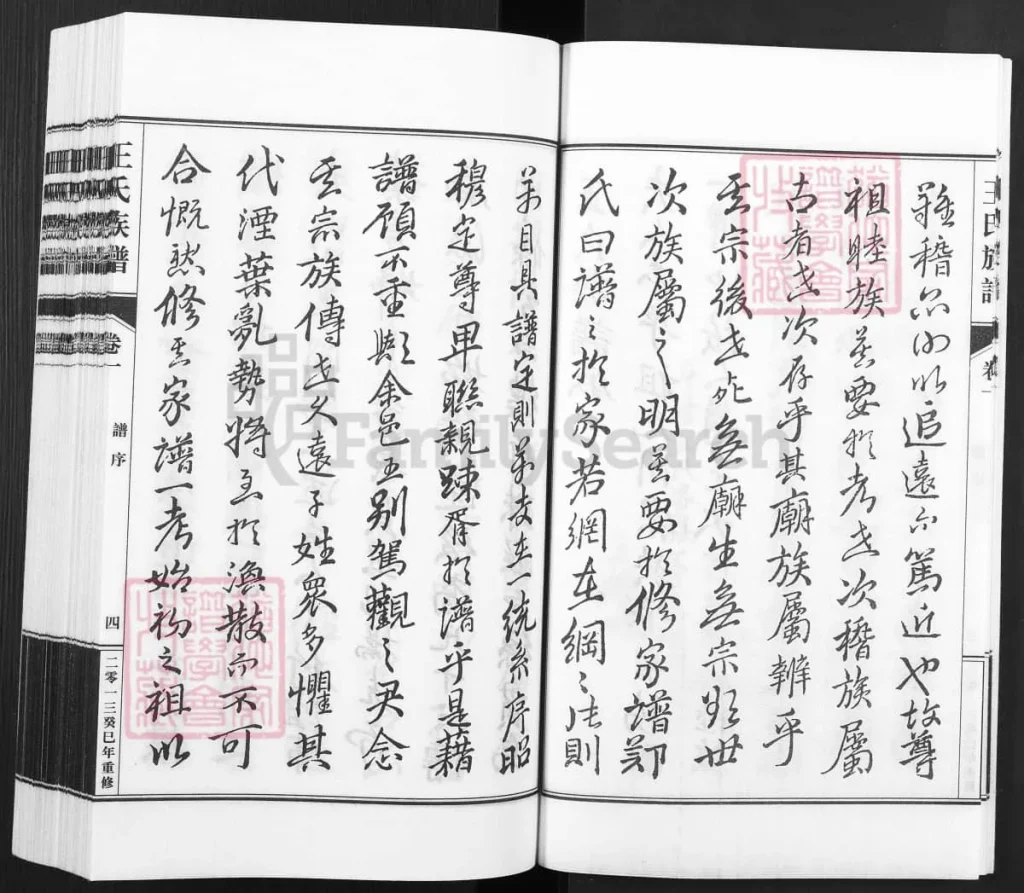 王氏族譜
卷一
難稽所以追遠而篤近也故尊
祖睦族莫要於考世次稽族屬
古者世次存乎其廟族屬辨乎
其宗後世死無廟生無宗然世
次族屬之明莫要於修家譜鄭
氏曰譜之於家若網在綱〻張則
萬目具譜定則萬支在一統系序昭
穆定尊卑聯親踈胥於譜乎是藉
譜顧不重歟余邑王别駕觀之尹念
其宗族傳世久遠子姓衆多懼其
代湮葉亂勢將至於渙散而不可
合慨然修其家譜一考始初之祖以
王氏族譜
卷一
譜序
四
二零一三癸巳年重修
FamilySearch